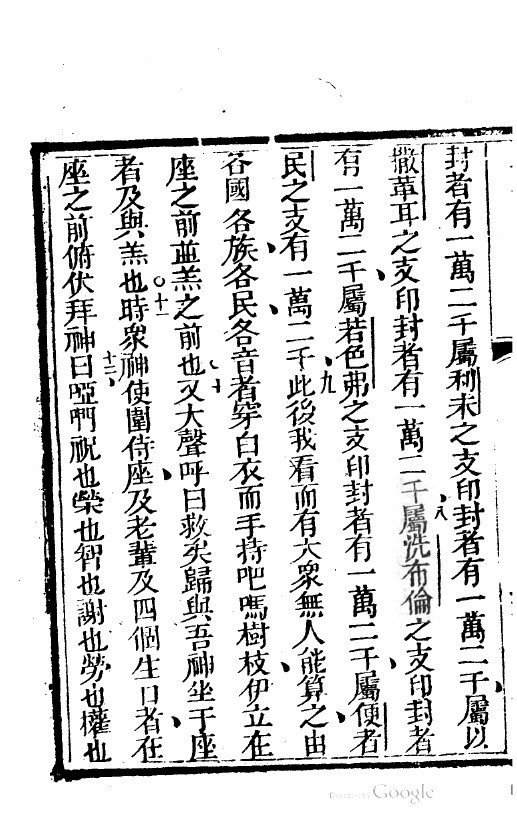 封者有一萬二千屬利未之支印封者有一萬二千屬以
撒革耳之支印封者有一萬二千屬洗布倫之支印封者
有一萬二千屬若色弗之支印封者有一萬二千屬便者
民之支有一萬二千九此後我看而有大衆無人能算之由
各國各族各民各音者穿白衣而手持吧嗎樹枝伊立在
座之前並羔之前也十又大聲呼曰救矣歸與吾神坐于座
者及與羔也十一時衆神使圍侍座及老輩及四個生口者在
座之前俯伏拜神曰十二啞們祝也榮也智也謝也勞也權也
Digitized by Google